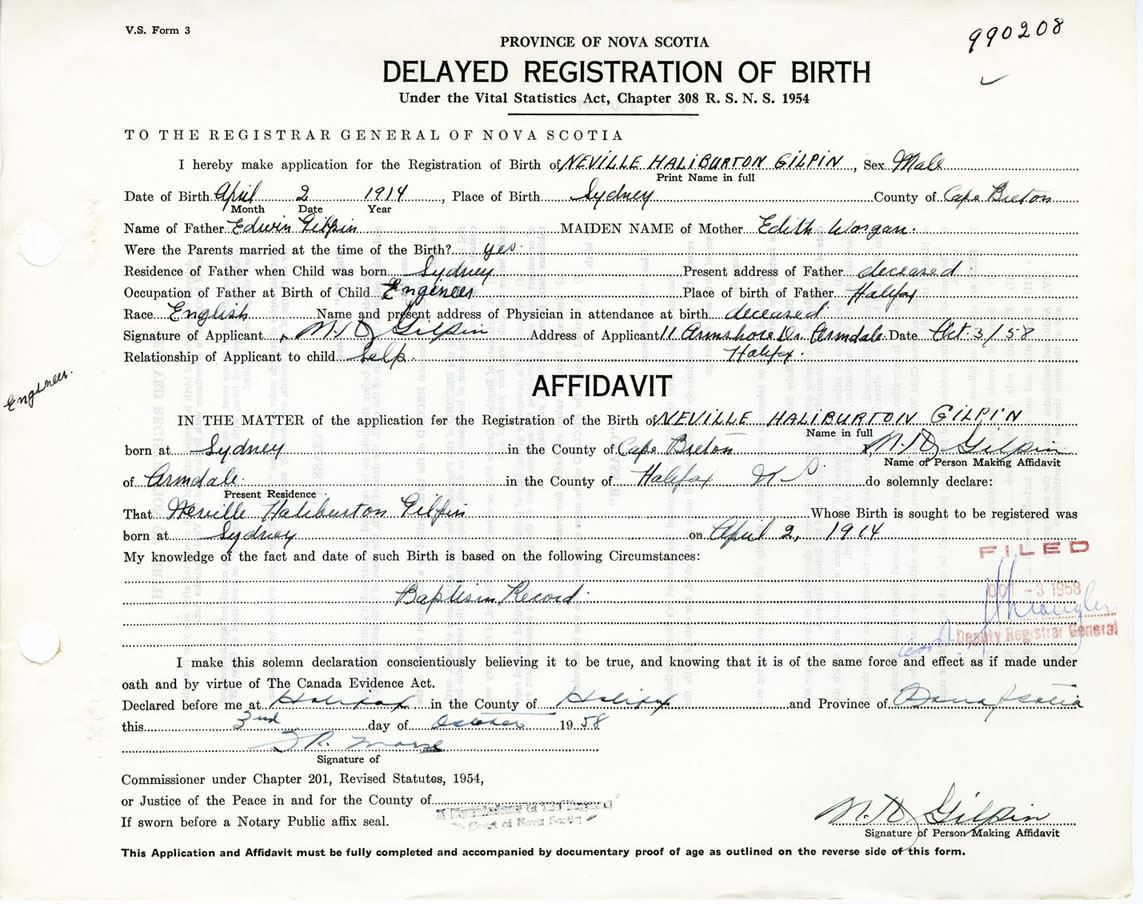 V.S. Form 3
990208
PROVINCE OF NOVA SCOTIA
DELAYED REGISTRATION OF BIRTH
Under the Vital Statistics Act, Chapter 308 R. S. N. S. 1954
TO THE REGISTRAR GENERAL OF NOVA SCOTIA
I hereby make application for the Registration of Birth of NEVILLE HALIBURTON GILPIN, Sex Male
Print Name in full
Date of Birth April 2 1914, Place of Birth Sydney County of Cape Breton
Month Date Year
Name of Father Edwin Gilpin MAIDEN NAME of Mother Edith Worgan.
Were the Parents married at the time of the Birth? yes.
Residence of Father when Child was born Sydney Present address of Father deceased.
Occupation of Father at Birth of Child Engineer Place of birth of Father Halifax
Race English Name and present address of Physician in attendance at birth deceased.
Signature of Applicant N.H. Gilpin Address of Applicant 11 Armshore Dr. Armdale. Date Oct 3/58
Relationship of Applicant to child Self. Halifax.
Engineer.
AFFIDAVIT
IN THE MATTER of the application for the Registration of the Birth of NEVILLE HALIBURTON GILPIN
Name in full
born at Sydney in the County of Cape Breton N.H. Gilpin
Name of Person Making Affidavit
of Armdale. in the County of Halifax N.S. do solemnly declare:
Present Residence
That Neville Haliburton Gilpin Whose Birth is sought to be registered was
born at Sydney on April 2, 1914
My knowledge of the fact and date of such Birth is based on the following Circumstances:
FILED
OCT -3 1958
Baptism Record.
Deputy Registrar General
I make this solemn declaration conscientiously believing it to be true, and knowing that it is of the same force and effect as if made under
oath and by virtue of The Canada Evidence Act.
Declared before me at Halifax in the County of Halifax and Province of Nova Scotia
this 3rd day of October 1958
Signature of
Commissioner under Chapter 201, Revised Statutes, 1954,
or Justice of the Peace in and for the County of
If sworn before a Notary Public affix seal.
Court of Nova Scotia
N.H. Gilpin
Signature of Person Making Affidavit
This Application and Affidavit must be fully completed and accompanied by documentary proof of age as outlined on the reverse side of this form.